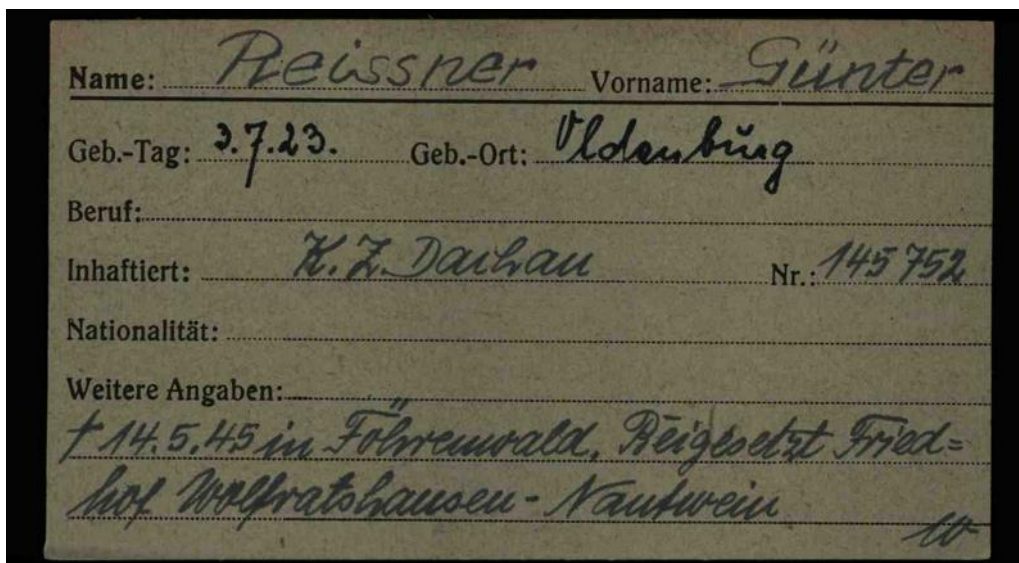 Name: Reissner Vorname: Günter
Geb.-Tag: 3.7.23. Geb.-Ort: Oldenburg
Beruf:
Inhaftiert: K.Z. Dachau Nr.: 145752
Nationalität:
Weitere Angaben:
† 14.5.45 in Föhrenwald. Beigesetzt Fried=
hof Wolfratshausen - Nantwein
10